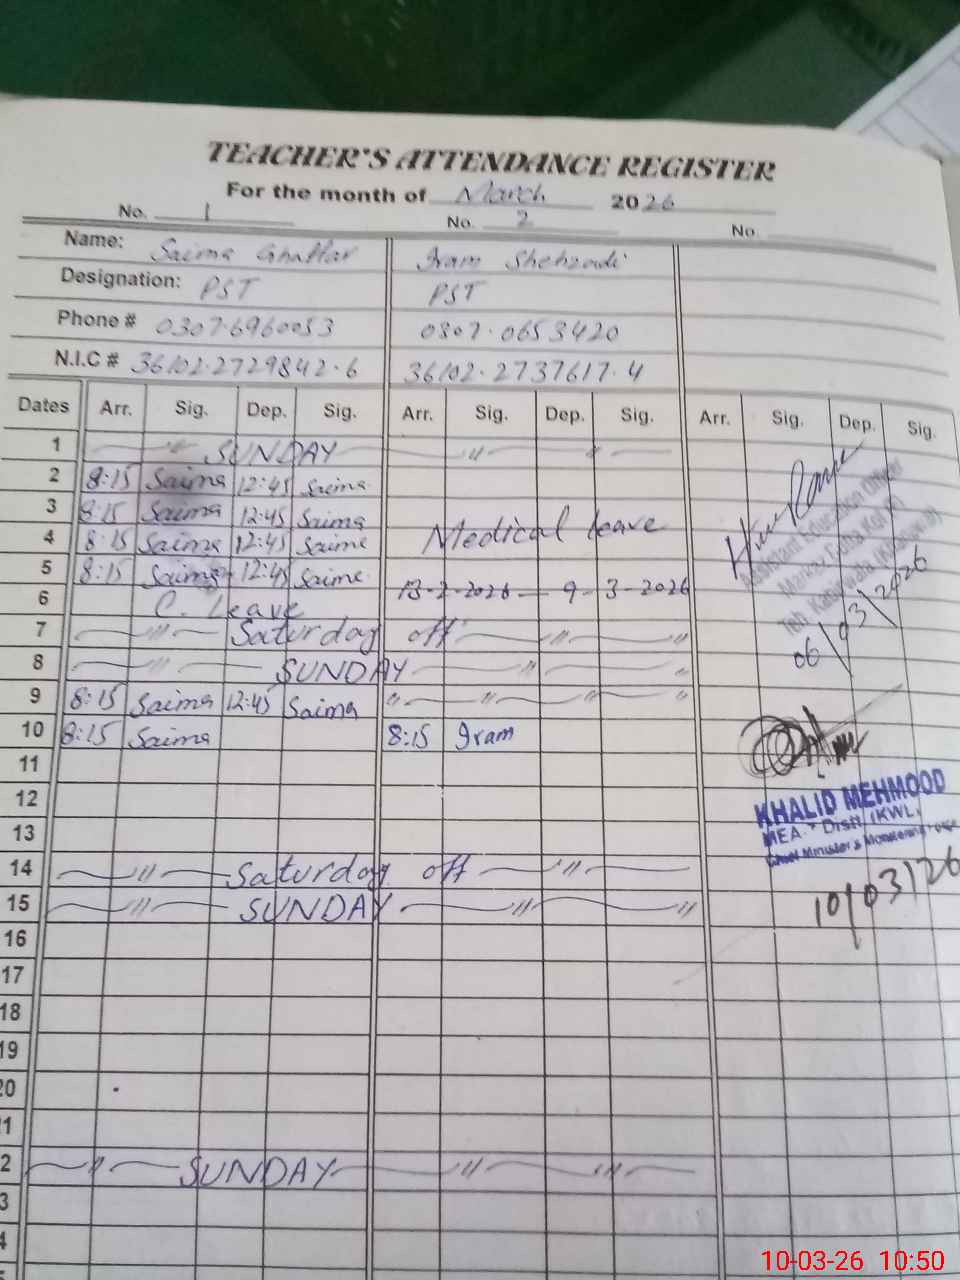 TEACHER'S ATTENDANCE REGISTER
For the month of March 2026
No. 1 No. 2 No.
Name: Saima Ghaffar Iram Shehzadi
Designation: PST PST
Phone # 0307.6960053 0307.0653420
N.I.C # 36102.2729842.6 36102.2737617.4
Dates Arr. Sig. Dep. Sig. Arr. Sig. Dep. Sig. Arr. Sig. Dep. Sig.
1 SUNDAY
2 8:15 Saima 12:45 Saima
3 8:15 Saima 12:45 Saima
4 8:15 Saima 12:45 Saima Medical leave
5 8:15 Saima 12:45 Saima 13-2-2026 — 9-3-2026
6 C. Leave
Assistant Education Officer
06/03/2026
7 Saturday off
8 SUNDAY
9 8:15 Saima 12:45 Saima
10 8:15 Saima 8:15 Iram
11
12
KHALID MEHMOOD
MEA Distt (KWL)
Chief Minister's Monitoring Force
13
14 Saturday off
10/03/26
15 SUNDAY
16
17
18
19
20
1
2 SUNDAY
3
4
10-03-26 10:50